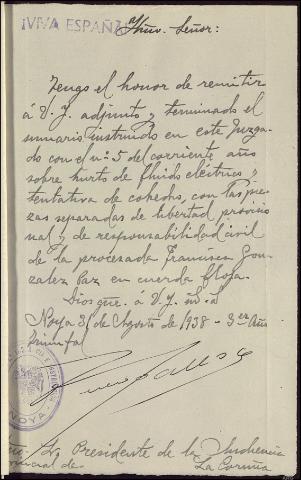 ¡VIVA ESPAÑA
Iltmo. Señor:
Tengo el honor de remitir
á V. I. adjunto y terminado el
sumario instruido en este Juzga-
do con el nº 5 del corriente año
sobre hurto de fluido eléctrico y
tentativa de cohecho, con las pie-
zas separadas de libertad provisio
nal y de responsabilidad civil
de la procesada Francisca Gon-
zalez Paz en cuerda floja.
Dios gue. á V. I. m. a.
Noya 31 de Agosto de 1938 - 3er Año
Triunfal
NOYA
Sr. Presidente de la Audiencia
Provincial de La Coruña